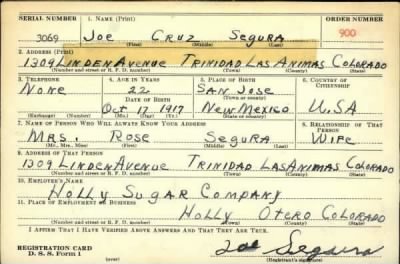 SERIAL NUMBER 1. NAME (Print) ORDER NUMBER
3069 JOE CRUZ SEGURA 900
(First) (Middle) (Last)
2. ADDRESS (Print)
1309 LINDEN AVENUE TRINIDAD LAS ANIMAS COLORADO
(Number and street or R. F. D. number) (Town) (County) (State)
3. TELEPHONE 4. AGE IN YEARS 5. PLACE OF BIRTH 6. COUNTRY OF CITIZENSHIP
NONE 22 SAN JOSE
DATE OF BIRTH (Town or county)
OCT 17 1917 NEW MEXICO U.S.A
(Exchange) (Number) (Mo.) (Day) (Yr.) (State or country)
7. NAME OF PERSON WHO WILL ALWAYS KNOW YOUR ADDRESS 8. RELATIONSHIP OF THAT PERSON
MRS. ROSE SEGURA WIFE
(Mr., Mrs., Miss) (First) (Middle) (Last)
9. ADDRESS OF THAT PERSON
1309 LINDEN AVENUE TRINIDAD LAS ANIMAS COLORADO
(Number and street or R. F. D. number) (Town) (County) (State)
10. EMPLOYER'S NAME
HOLLY SUGAR COMPANY
11. PLACE OF EMPLOYMENT OR BUSINESS
HOLLY OTERO COLORADO
(Number and street or R. F. D. number) (Town) (County) (State)
I AFFIRM THAT I HAVE VERIFIED ABOVE ANSWERS AND THAT THEY ARE TRUE.
REGISTRATION CARD
D. S. S. Form 1 Joe Segura
(over) (Registrant's signature)